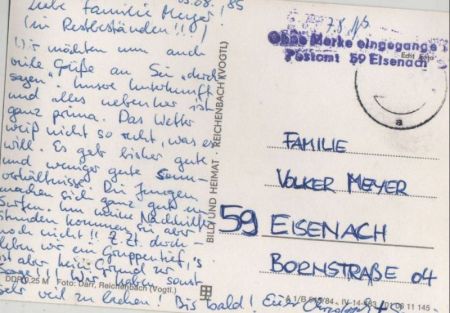 05.08.85
Liebe Familie Meyer!
(in Restbeständen!!!)
Wir möchten nun auch
viele Grüße an Sie "durch-
sagen". Unsere Unterkunft
und alles nebenher ist
ganz prima. Das Wetter
weiß nicht so recht, was es
will. Es gab bisher gute
und weniger gute
verhältnisse! Die Jungen
machen sich ganz gut im
Surfen, um meine Nachhilfe-
stunden kommen Sie aber
noch nicht!! Z.Zt. durch-
leben wir ein Gruppentief, 's
ist aber kein Grund zur
Sage!!! Wir haben sonst
sehr viel zu lachen! Bis bald! Euer
DDR 0,25 M Foto: Darr, Reichenbach (Vogtl.)
BILD UND HEIMAT · REICHENBACH (VOGTL)
7.8.
Ohne Marke eingegangen
Postamt 59 Eisenach
a
FAMILIE
VOLKER MEYER
59 EISENACH
BORNSTRAßE 04
A 1/B 84 IV-14-483 01 08 11 145